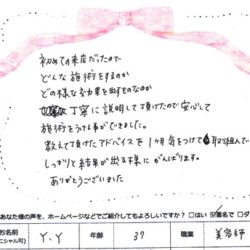 初めての来店だったので
どんな施術をするのか
どの様な効果を出すものなのか
丁寧に説明して頂けたので安心して
施術をうける事ができました。
教えて頂けたアドバイスを1ヶ月をつけて取り組んで
しっかりと結果が出る様にがんばります。
ありがとうございました
あなた様の声を、ホームページなどでご紹介してもよろしいですか? □はい ☑匿名で □
お名前 Y.Y 年齢 37 職業 美容師
ニシャル可)